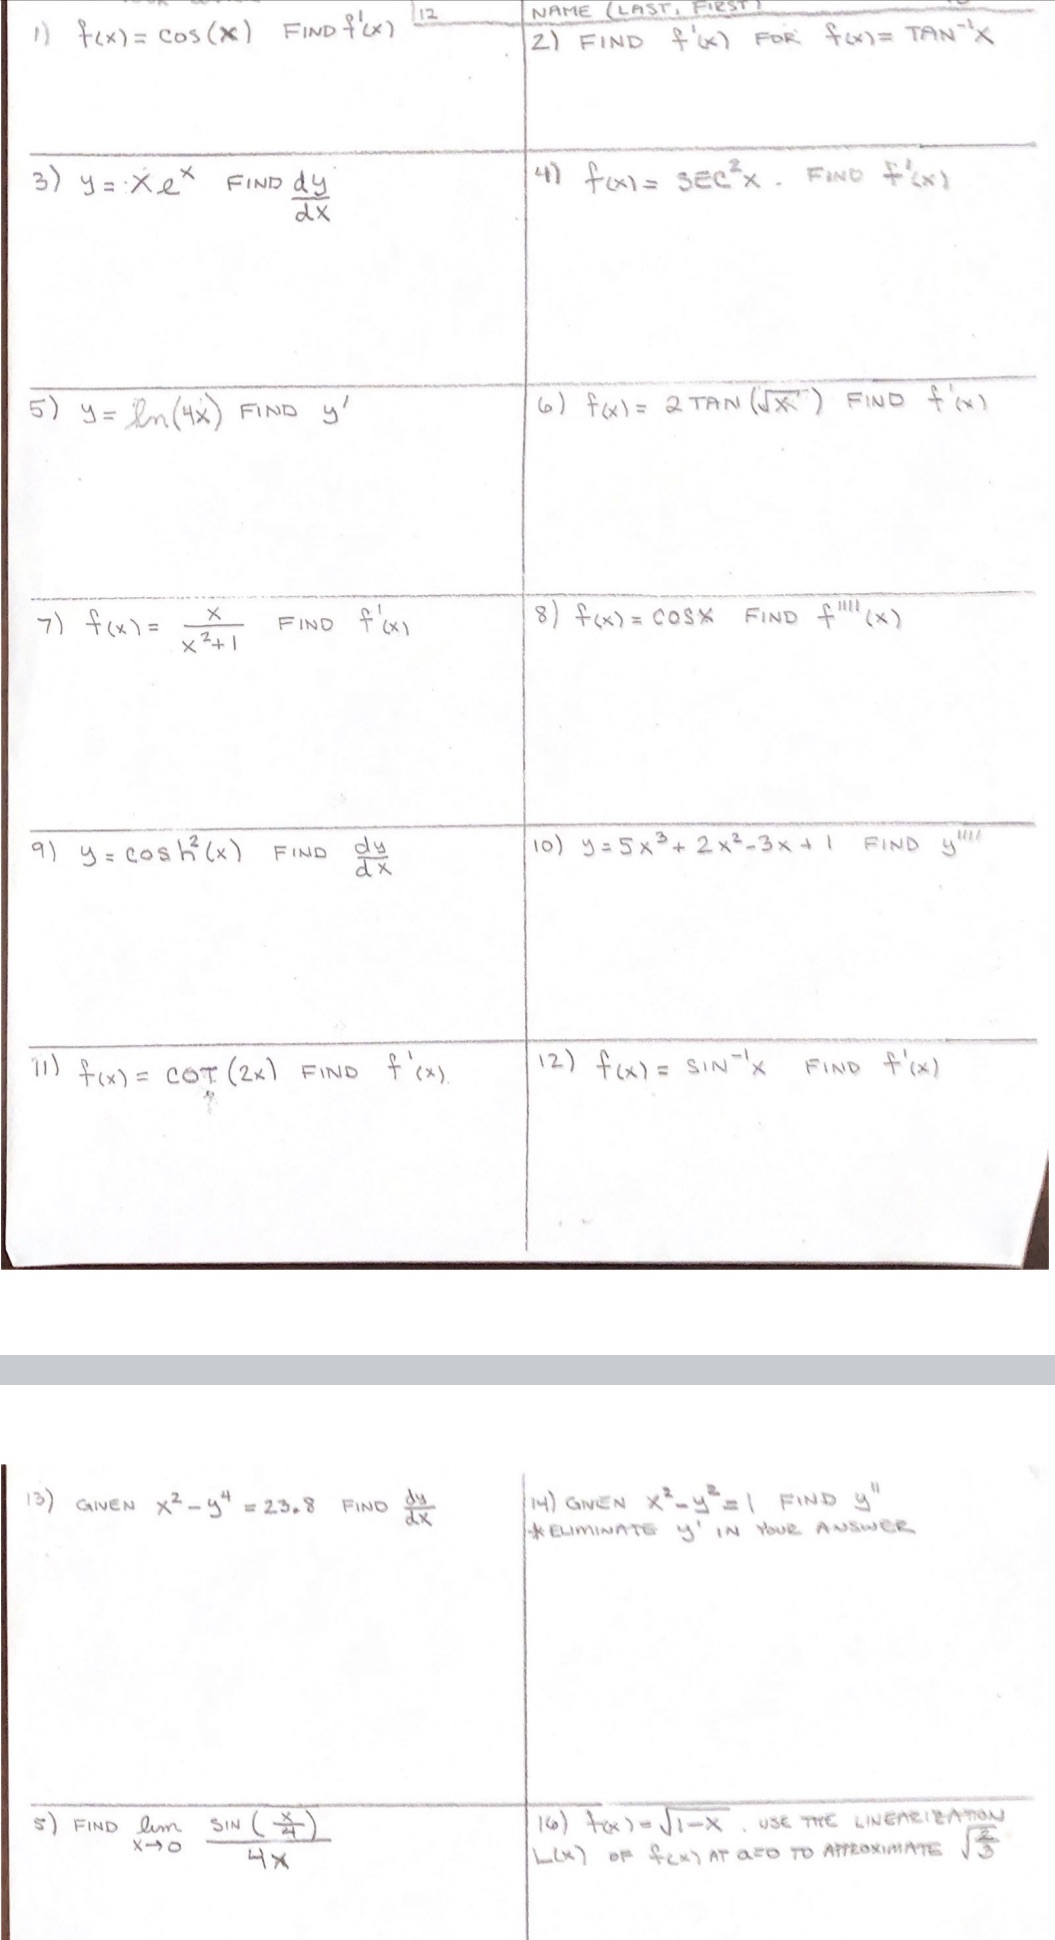 12
NAME (LAST, FIRST)
1) f(x) = cos(x) FIND f'(x)
2) FIND f'(x) FOR f(x) = TAN⁻¹x
3) y = xeˣ FIND dy/dx
4) f(x) = SEC²x. FIND f'(x)
5) y = ln(4x) FIND y'
6) f(x) = 2 TAN(√x) FIND f'(x)
7) f(x) = x/(x²+1) FIND f'(x)
8) f(x) = COSX FIND f'''''(x)
9) y = cosh²(x) FIND dy/dx
10) y = 5x³ + 2x² - 3x + 1 FIND y''''
11) f(x) = COT (2x) FIND f'(x).
12) f(x) = SIN⁻¹x FIND f'(x)
13) GIVEN x² - y⁴ = 23.8 FIND dy/dx
14) GIVEN x² - y² = 1 FIND y''
*ELIMINATE y' IN YOUR ANSWER
5) FIND lim x→0 SIN(x/4)/4x
16) f(x) = √1-x . USE THE LINEARIZATION
L(x) OF f(x) AT a=0 TO APPROXIMATE √2/3